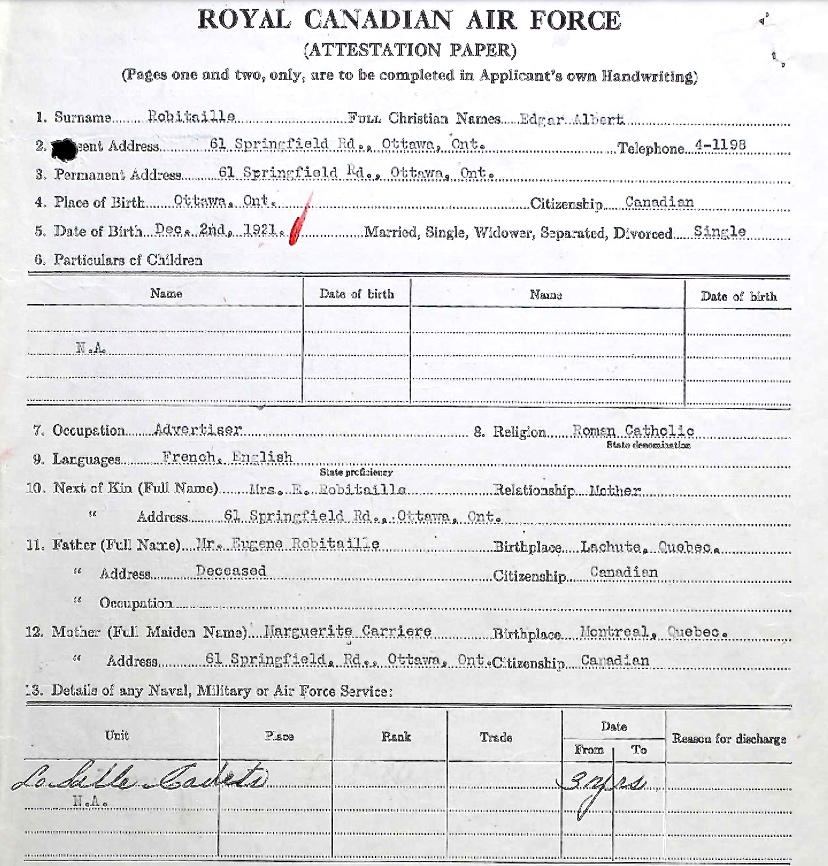 ROYAL CANADIAN AIR FORCE
(ATTESTATION PAPER)
(Pages one and two, only, are to be completed in Applicant's own Handwriting)
1. Surname Robitaille FULL Christian Names Edgar Albert
2. ent Address 61 Springfield Rd., Ottawa, Ont. Telephone 4-1198
3. Permanent Address 61 Springfield Rd., Ottawa, Ont.
4. Place of Birth Ottawa, Ont. Citizenship Canadian
5. Date of Birth Dec. 2nd, 1921. Married, Single, Widower, Separated, Divorced Single
6. Particulars of Children
Name Date of birth Name Date of birth
N.A.
7. Occupation Advertiser 8. Religion Roman Catholic
State denomination
9. Languages French, English
State proficiency
10. Next of Kin (Full Name) Mrs. E. Robitaille Relationship Mother
" Address 61 Springfield Rd., Ottawa, Ont.
11. Father (Full Name) Mr. Eugene Robitaille Birthplace Lachute, Quebec.
" Address Deceased Citizenship Canadian
" Occupation
12. Mother (Full Maiden Name) Marguerite Carriere Birthplace Montreal, Quebec.
" Address 61 Springfield, Rd., Ottawa, Ont. Citizenship Canadian
13. Details of any Naval, Military or Air Force Service:
Unit Place Rank Trade Date Reason for discharge
From To
La Salle Cadets 3 yrs
N.A.